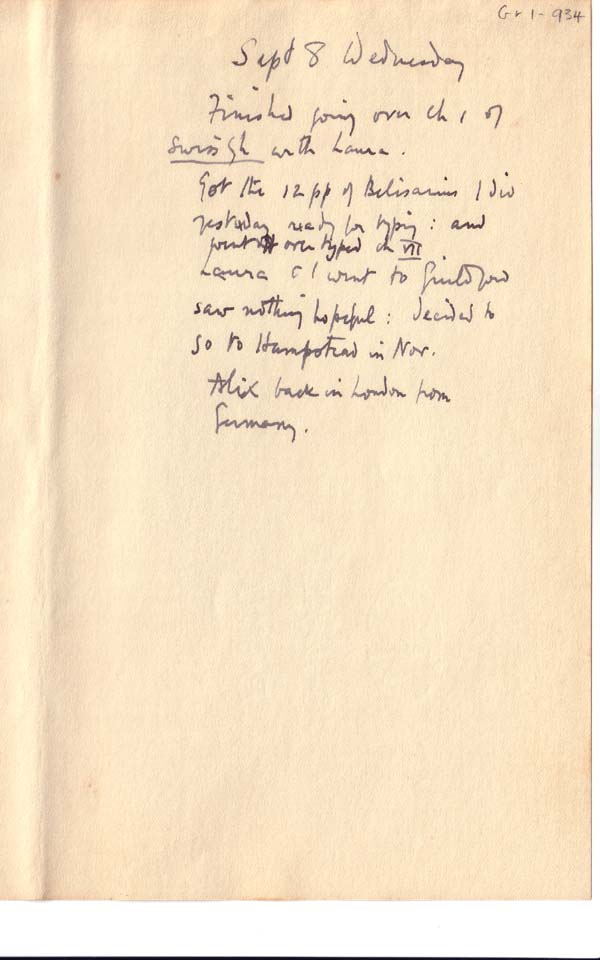 Gr 1-934
Sept 8 Wednesday
Finished going over ch 1 of
Swiss Gh with Laura.
Got the 12 pp of Belisarius I did
yesterday ready for typing: and
went over typed ch VII
Laura & I went to Guildford
saw nothing hopeful: decided to
go to Hampstead in Nov.
Alix back in London from
Germany.